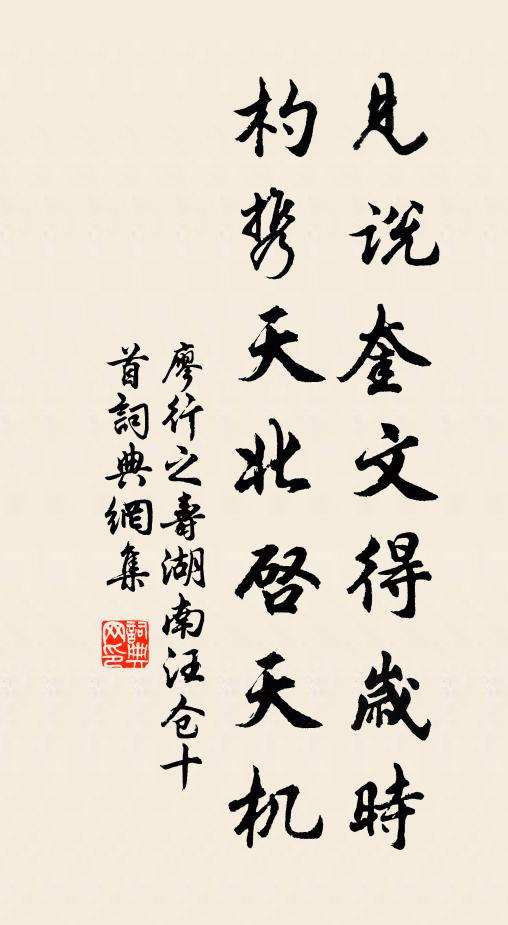 見說奎文得歲時
杓携天北啓天机
廖行之壽湖南汪仓十
首詞典網集
詞典
网印